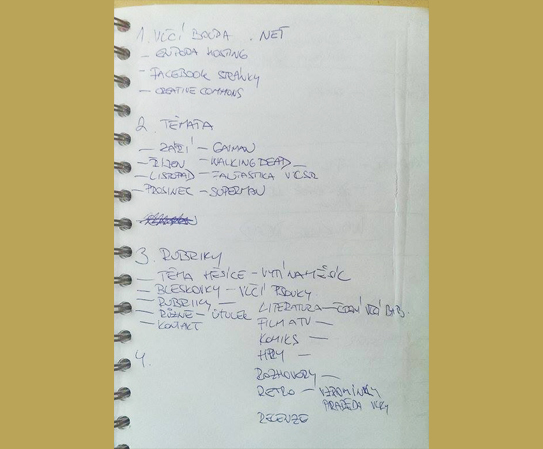 1. VLČÍ BOUDA .NET
– ENDORA HOSTING
– FACEBOOK STRÁNKY
– CREATIVE COMMONS
2. TÉMATA
– ZÁŘÍ – GAIMAN
– ŘÍJEN – WALKING DEAD
– LISTOPAD – FANTASTIKA
– PROSINEC – SUPERMAN
3. RUBRIKY
– TÉMA MĚSÍCE – VYTÍ NA MĚSÍC
– BLESKOVKY – VLČÍ
– RUBRIKY –
LITERATURA – VLČÍ
– RŮZNÉ – ÚTULEK
FILM A TV –
– KONTAKT
KOMIKS –
HRY –
4.
ROZHOVORY –
RETRO – VZPOMÍNKY
PRADĚDA VLKA
RECENZE